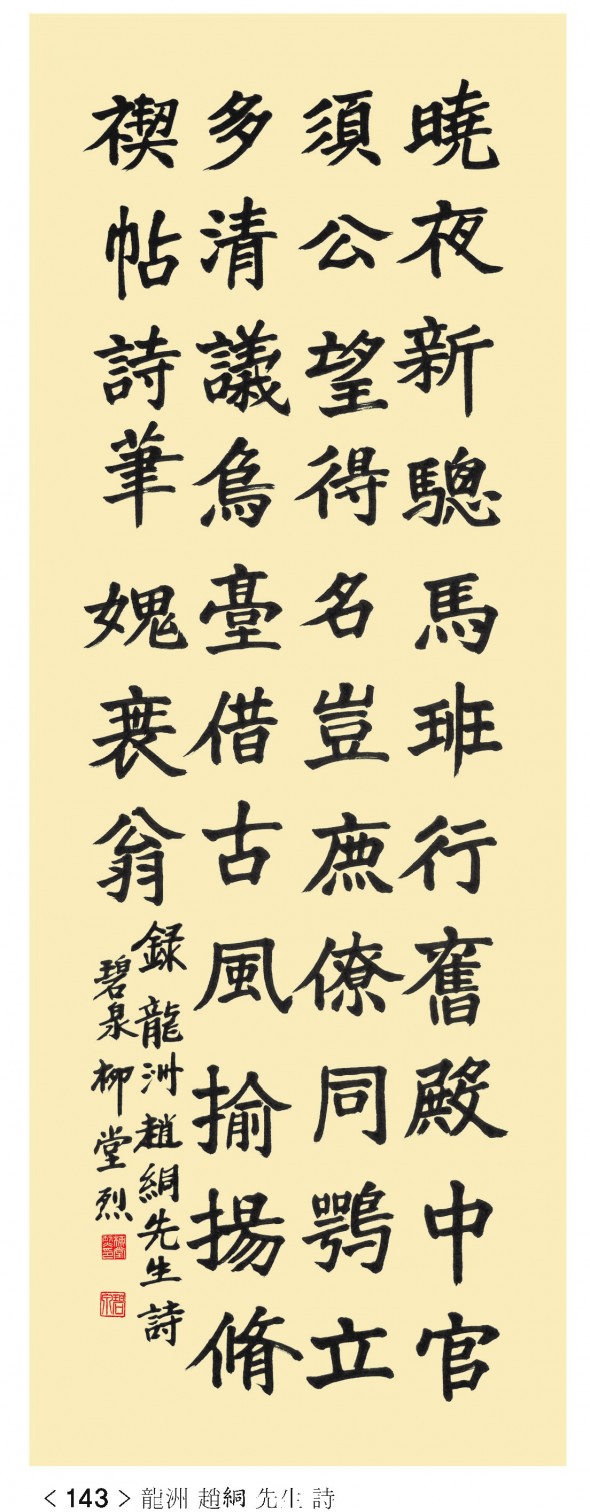 曉夜新驄馬班行舊殿中官
須公望得名豈庶僚同鶚立
多清議烏臺借古風揄揚脩
禊帖詩筆媿衰翁
録龍洲趙絅先生詩
碧泉柳堂烈
< 143 > 龍洲 趙絅 先生 詩